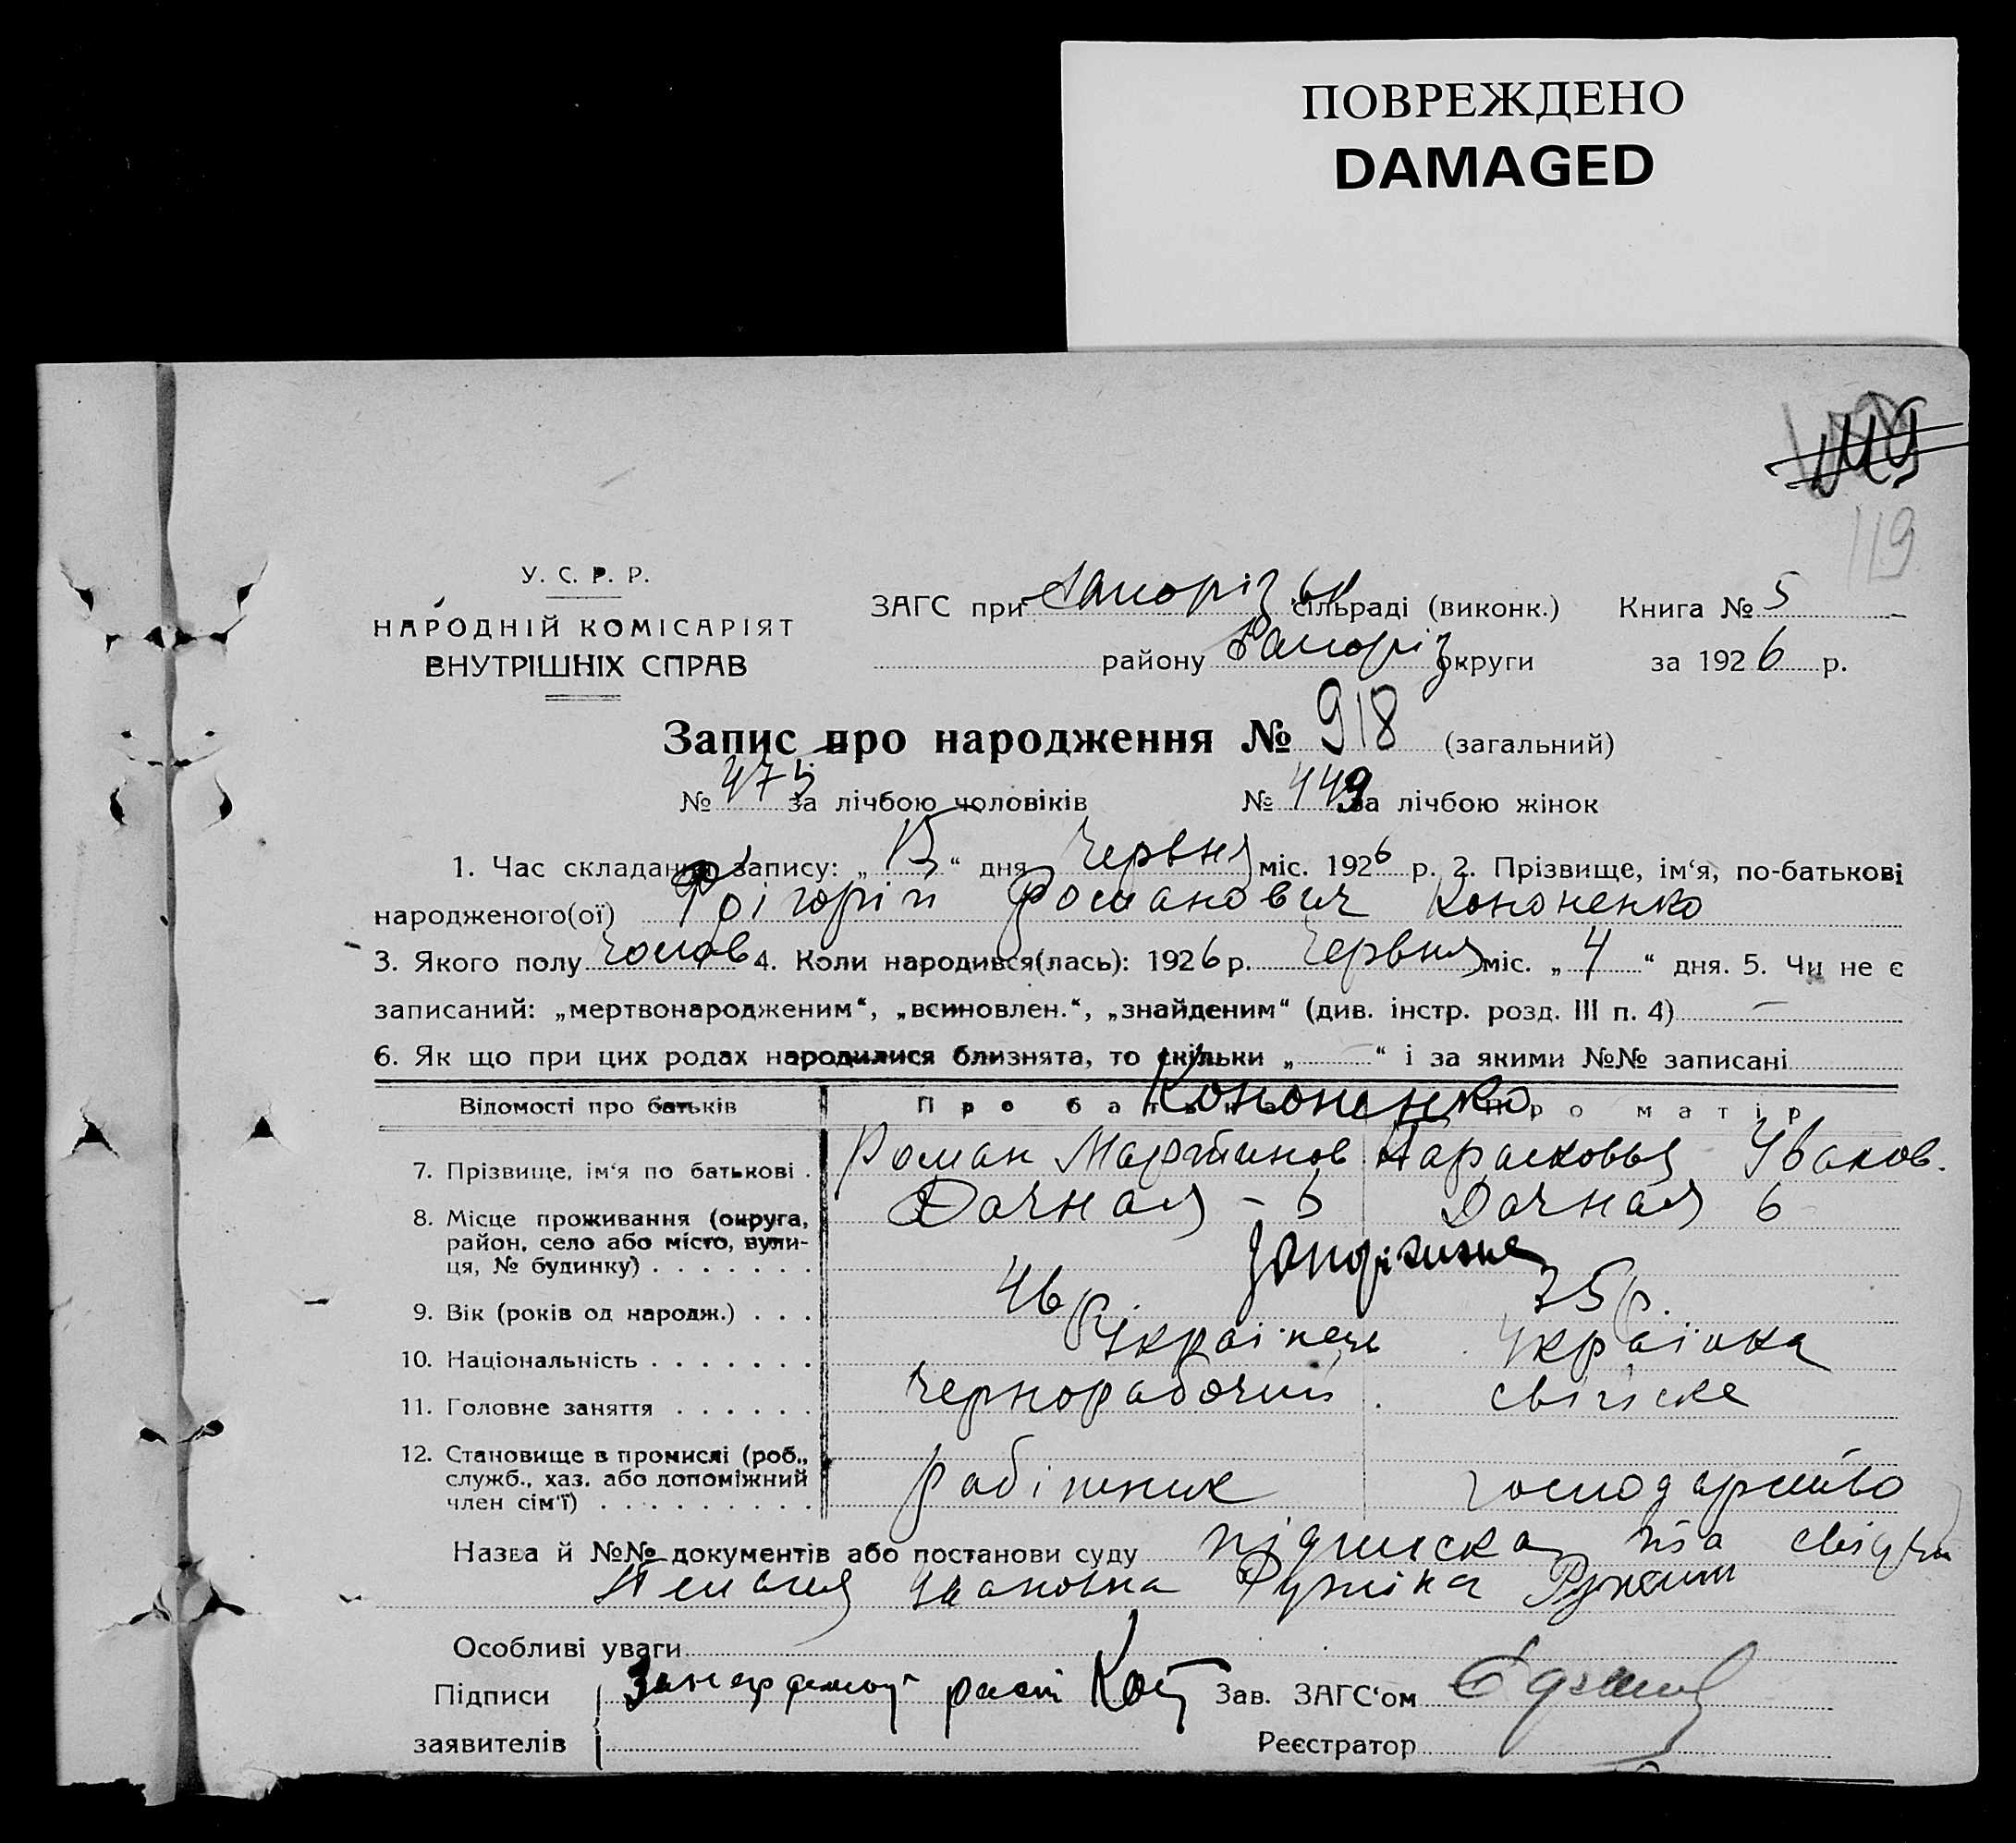 ПОВРЕЖДЕНО
DAMAGED
119
У. С. Р. Р.
НАРОДНІЙ КОМІСАРІЯТ
ВНУТРІШНІХ СПРАВ
ЗАГС при Запорізьк сільраді (виконк.) Книга № 5
району Запоріз округи за 1926 р.
Запис про народження № 918 (загальний)
№ 475 за лічбою чоловіків № 449 за лічбою жінок
1. Час складання запису: „15“ дня Червня міс. 1926 р. 2. Прізвище, ім‘я, по-батькові
народженого(ої) Грігорій Романович Кононенко
3. Якого полу чолов 4. Коли народився(лась): 1926 р. Червня міс. „4“ дня. 5. Чи не є
записаний: „мертвонародженим“, „всиновлен.“, „знайденим“ (див. інстр. розд. III п. 4) —
6. Як що при цих родах народилися близнята, то скільки „ “ і за якими №№ записані
Відомості про батьків Про батька Про матір
Кононенко
7. Прізвище, ім‘я по батькові . Роман Мартинов Парасковья Іванов.
8. Місце проживання (округа, район, село або місто, вули-ця, № будинку) . . . . . . . Дачная - 6 Дачная 6
Запоріжжя
9. Вік (років од народж.) . . . 46 р. 35 р.
10. Національність . . . . . . . Українець Українка
11. Головне заняття . . . . . . Чернорабочий свійске
12. Становище в промислі (роб., служб., хаз. або допоміжний член сім‘ї) . . . . . . . . . робітник господарство
Назва й №№ документів або постанови суду підписка
Особливі уваги
Підписи Зав. ЗАГС‘ом
заявителів Реєстратор